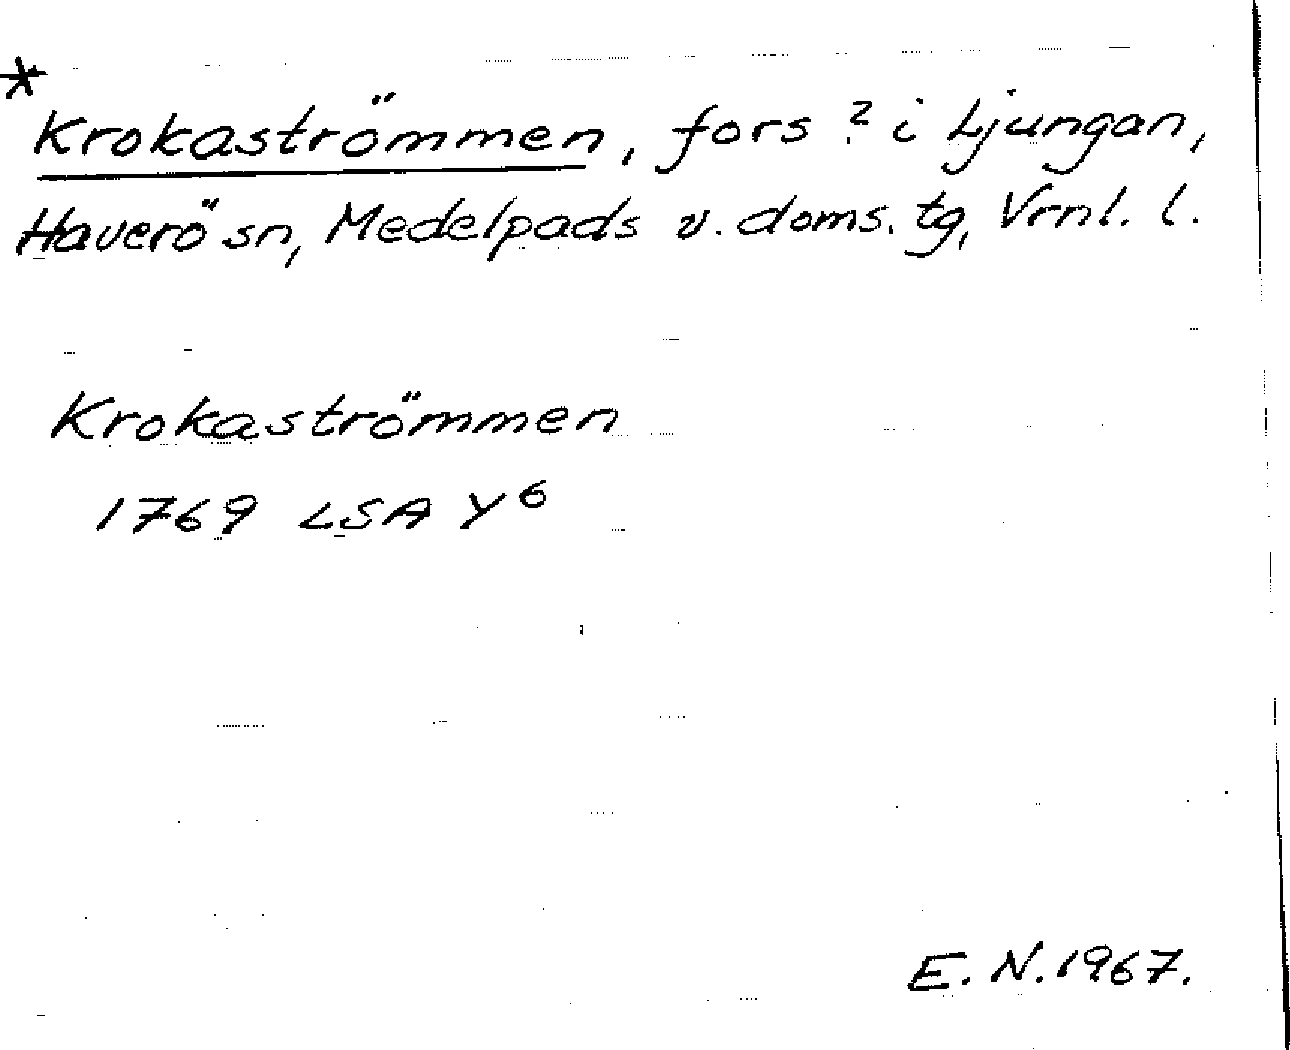 *
Krokaströmmen, fors? i Ljungan,
Haverö sn, Medelpads v. doms. tg, Vrnl. l.
Krokaströmmen
1769 LSA Y6
E. N. 1967.